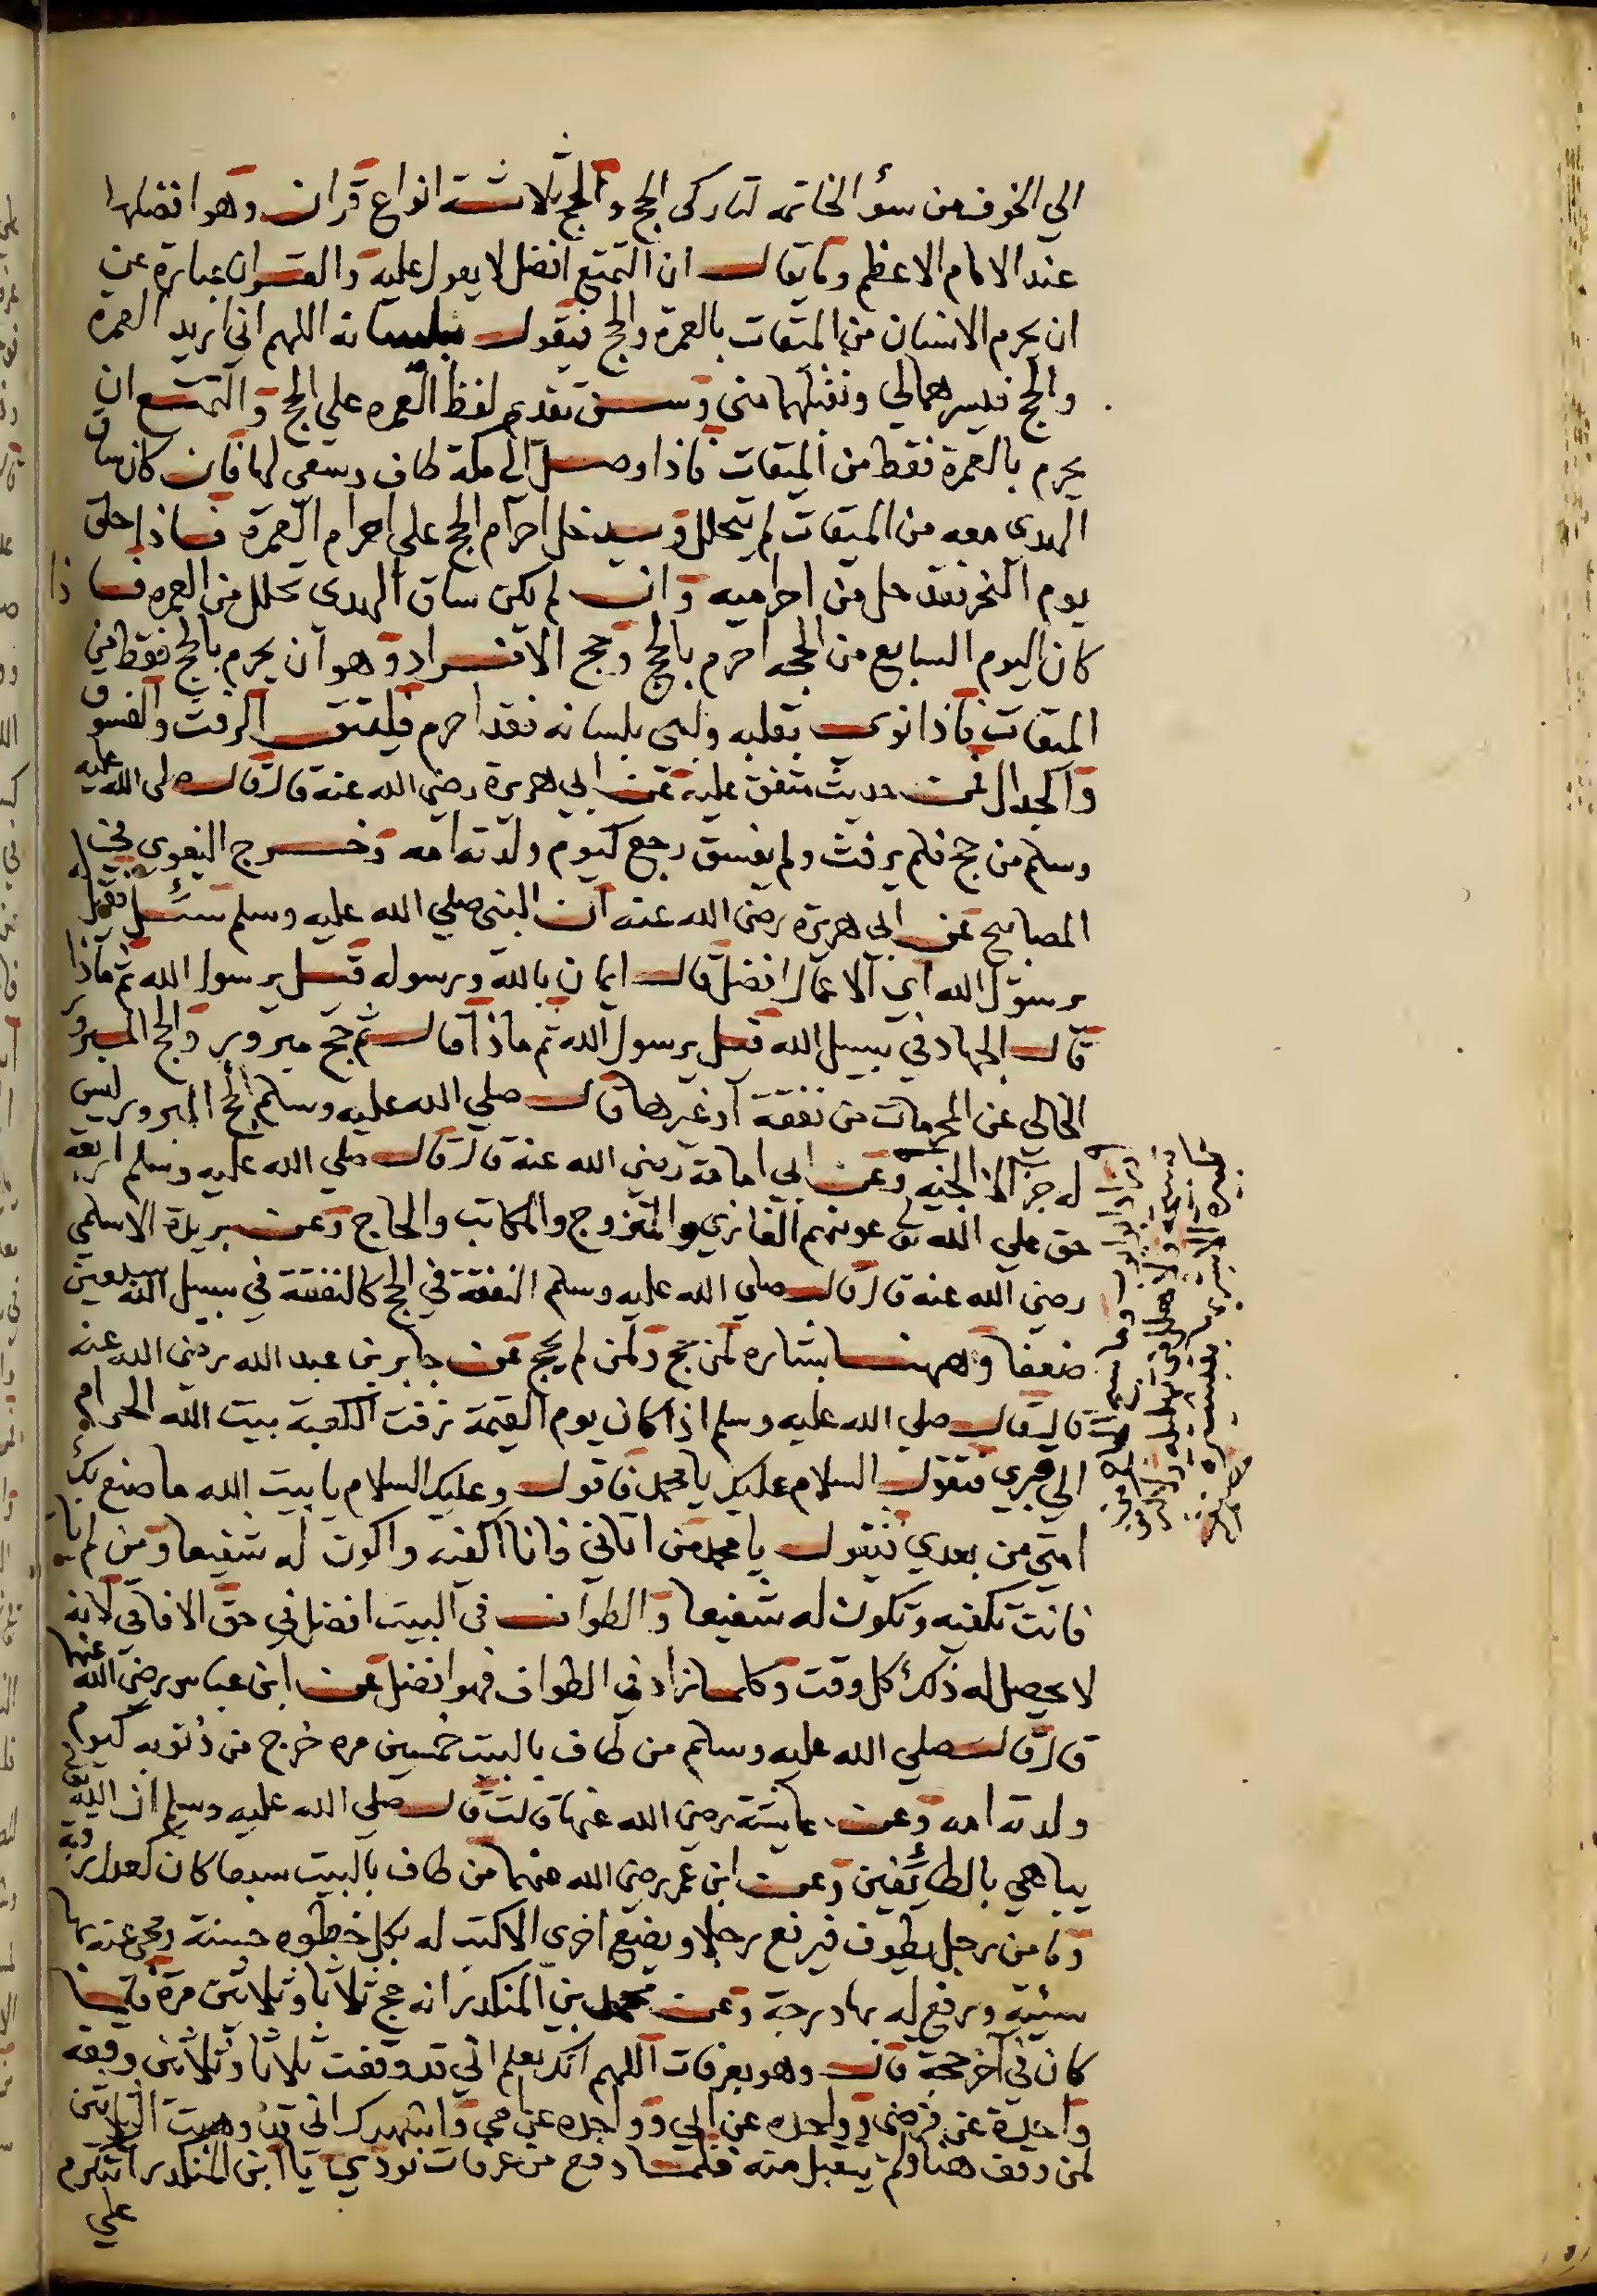 الي الخوف من سؤ الخاتمه لتاركي الحج والحج ثلاثة انواع قران وهو افضلها
عند الامام الاعظم وما يقال ان التمتع افضل لا يعول عليه والقران عبارة عن
ان يحرم الانسان من الميقات بالعمرة والحج فيقول بلسانه اللهم اني اريد العمرة
والحج فيسرهما لي وتقبلهما مني وسن تقديم لفظ العمره علي الحج والتمتع ان
يحرم بالعمرة فقط من الميقات فاذا وصل الي مكة طاف وسعي لها فان كان ساق
الهدي معه من الميقات لم يتحلل وسيدخل احرام الحج علي احرام العمرة فاذا حلق
يوم النحر فقد حل من احراميه وان لم يكن ساق الهدي تحلل من العمره فاذا
كان اليوم السابع من الحجه احرم بالحج وحج الافراد وهو ان يحرم بالحج فقط من
الميقات فاذا نوي بقلبه ولبي بلسانه فقد احرم فليتق الرفث والفسوق
والجدال فمن حديث متفق عليه عن ابي هريرة رضي الله عنه قال قال صلي الله عليه
وسلم من حج فلم يرفث ولم يفسق رجع كيوم ولدته امه وخرج البغوي في
المصابيح عن ابي هريرة رضي الله عنه ان النبي صلي الله عليه وسلم سئل فقيل
يرسول الله اي الاعمال افضل قال ايمان بالله ورسوله قيل يرسول الله ثم ماذا
قال الجهاد في سبيل الله قيل يرسول الله ثم ماذا قال ثم حج مبرور والحج المبرور
الخالي عن المحرمات من نفقة او غيرها قال صلي الله عليه وسلم الحج المبرور ليس
له جزا الا الجنه وعن ابي امامة رضي الله عنه قال قال صلي الله عليه وسلم اربعة
حق علي الله تع عونهم الغازي والمتزوج والمكاتب والحاج وعن بريدة الاسلمي
رضي الله عنه قال قال صلي الله عليه وسلم النفقة في الحج كالنفقة في سبيل الله سبعين
ضعفا وههنا بشاره لمن حج ولمن لم يحج عن جابر بن عبد الله رضي الله عنه
قال قال صلي الله عليه وسلم اذا كان يوم القيمة زفت الكعبة بيت الله الحرام
الي قبري فتقول السلام عليك يا محمد فاقول وعليك السلام يا بيت الله ما صنع بك
امتي من بعدي فتقول يا محمد من اتاني فانا اكفيه واكون له شفيعا ومن لم يا
فانت تكفيه وتكون له شفيعا والطواف في البيت افضل في حق الافاقي لانه
لا يحصل له ذلك كل وقت وكلما زاد في الطواف فهو افضل عن ابن عباس رضي الله عنهما
قال قال صلي الله عليه وسلم من طاف بالبيت خمسين مره خرج من ذنوبه كيوم
ولدته امه وعن عايشة رضي الله عنها قالت قال صلي الله عليه وسلم ان الله تعالي
يباهي بالطائفين وعن ابن عمر رضي الله عنهما من طاف بالبيت سبعا كان كعدل رقبة
وما من رجل يطوف فيرفع رجلا ويضع اخري الا كتب له بكل خطوه حسنة ومحي عنه بها
سيئة ورفع له بها درجة وعن محمد بن المنكدر انه حج ثلاثا وثلاثين مرة فلما
كان في آخر حجة قال وهو بعرفات اللهم انك تعلم اني قد وقفت ثلاثا وثلاثين وقفه
واحدة عن فرضي وواحده عن ابي وواحده عن امي واشهدك اني قد وهبت الثلاثين
لمن وقف هنا ولم يتقبل منه فلما دفع من عرفات نودي يا ابن المنكدر اتتكرم
علي